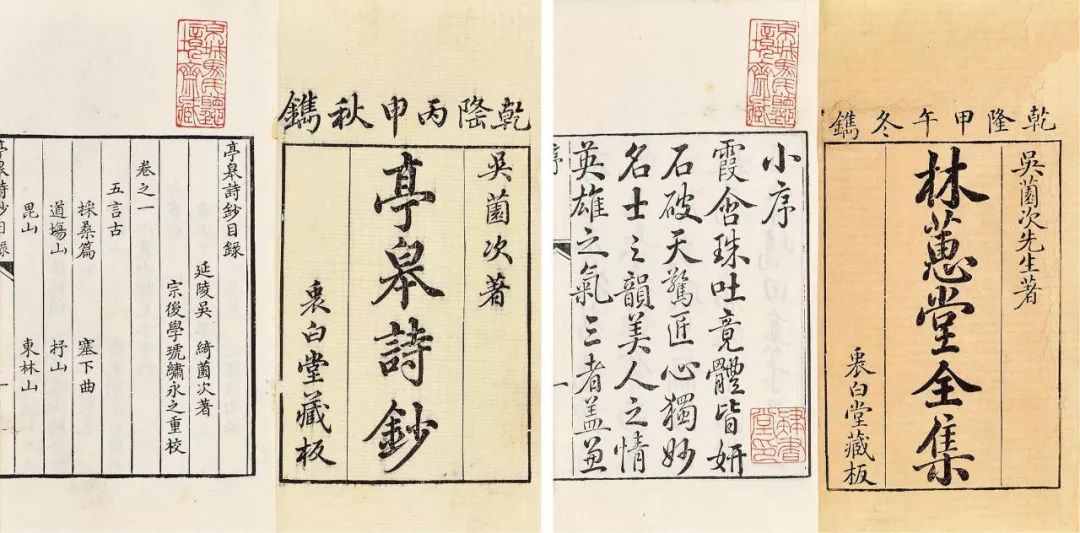 乾隆丙申秋鐫
吳薗次著
亭皋詩鈔
衷白堂藏板
亭皋詩鈔目錄
延陵吳 綺薗次著
宗後學琥繡永之重校
卷之一
五言古
採桑篇 塞下曲
道場山 抒山
毘山 東林山
乾隆甲午冬鐫
吳薗次先生著
林蕙堂全集
衷白堂藏板
小序
霞含珠吐竟體皆妍
石破天驚匠心獨妙
名士之韻美人之情
英雄之氣三者蓋兼